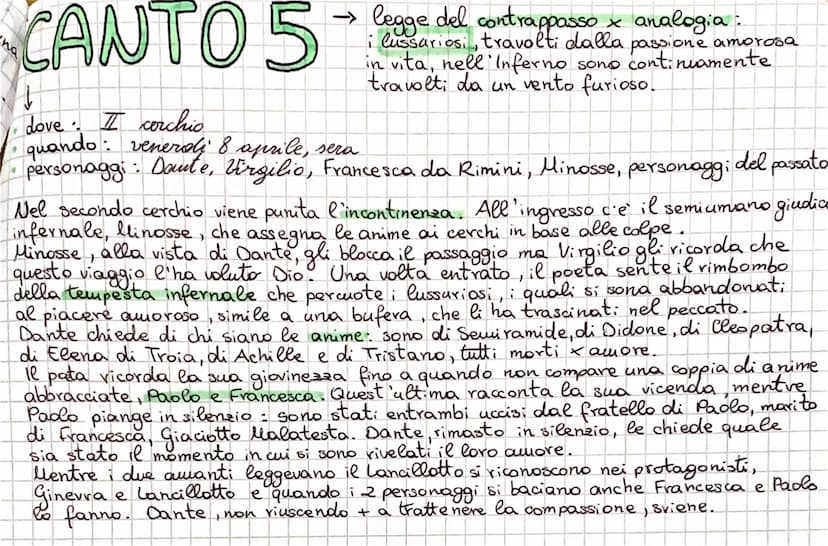 CANTO 5 → legge del contrappasso x analogia:
i lussuriosi, travolti dalla passione amorosa
in vita, nell'Inferno sono continuamente
travolti da un vento furioso.
↓
• dove: II cerchio
• quando: venerdi' 8 aprile, sera
• personaggi: Dante, Virgilio, Francesca da Rimini, Minosse, personaggi del passato
Nel secondo cerchio viene punita l'incontinenza. All'ingresso c'e' il semiumano giudice
infernale, Minosse, che assegna le anime ai cerchi in base alle colpe.
Minosse, alla vista di Dante, gli blocca il passaggio ma Virgilio gli ricorda che
questo viaggio l'ha voluto Dio. Una volta entrato, il poeta sente il rimbombo
della tempesta infernale che percuote i lussuriosi, i quali si sono abbandonati
al piacere amoroso, simile a una bufera, che li ha trascinati nel peccato.
Dante chiede di chi siano le anime: sono di Semiramide, di Didone, di Cleopatra,
di Elena di Troia, di Achille e di Tristano, tutti morti x amore.
Il poeta ricorda la sua giovinezza fino a quando non compare una coppia di anime
abbracciate, Paolo e Francesca. Quest'ultima racconta la sua vicenda, mentre
Paolo piange in silenzio: sono stati entrambi uccisi dal fratello di Paolo, marito
di Francesca, Giaciotto Malatesta. Dante, rimasto in silenzio, le chiede quale
sia stato il momento in cui si sono rivelati il loro amore.
Mentre i due amanti leggevano il Lancillotto si riconoscono nei protagonisti,
Ginevra e Lancillotto e quando i 2 personaggi si baciano anche Francesca e Paolo
lo fanno. Dante, non riuscendo + a trattenere la compassione, sviene.